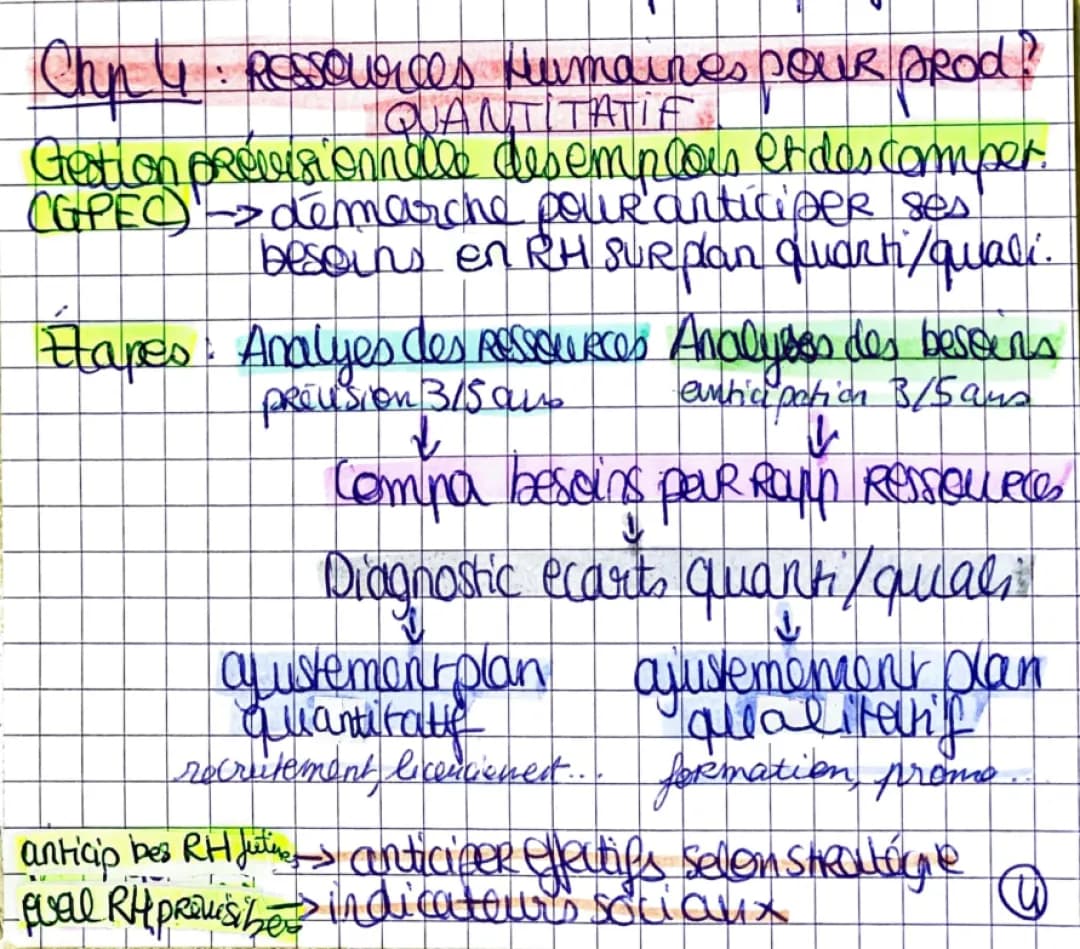 Chp 4 : Ressources Humaines pour prod ?
QUANTITATIF
Gestion prévisionnelle des emplois et des comper.
(GPEC) -> démarche pour anticiper ses
besoins en RH sur plan quanti/quali.
Étapes : Analyes des ressources Analyses des besoins
prévision 3/5 ans anticipation 3/5 ans
↓ ↓
Compa besoins par rapp ressources
↓
Diagnostic ecarts quanti/quali
↓ ↓
ajustement plan ajustemement plan
quantitatif qualitatif
recrutement, licenciement... formation, promo...
anticip bes RH futurs -> anticiper effectifs selon stratégie
eval RH prévisibles -> indicateurs sociaux
4